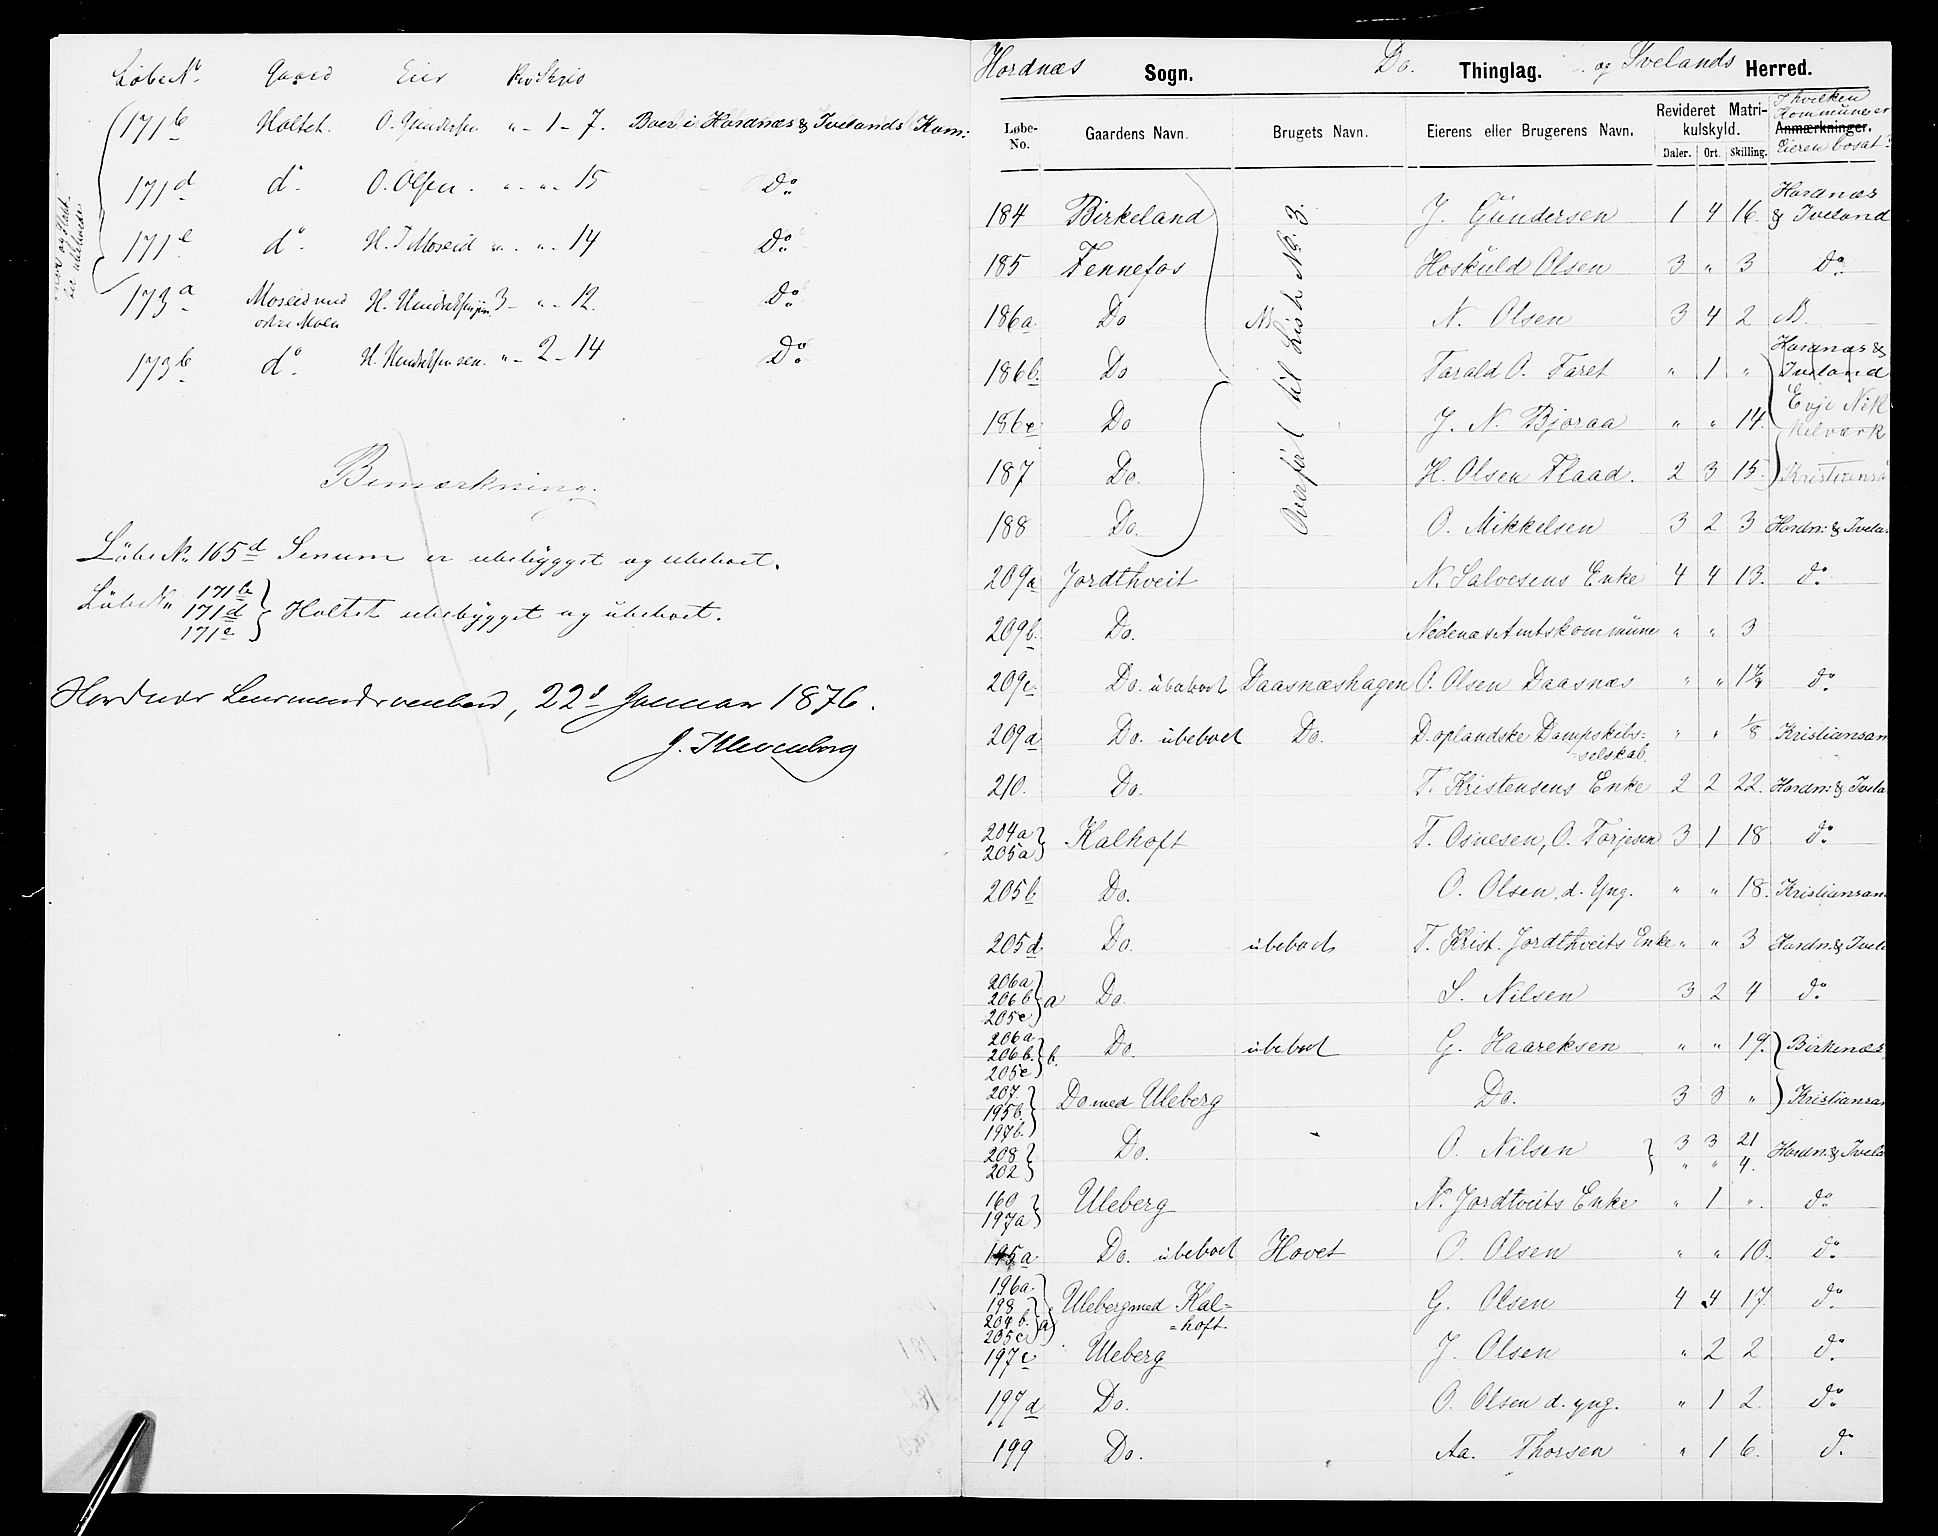 LøbeNo. Gaard Eier Rev Skyld
171b Holtet. O. Gundersen " - 1 - 7. Boer i Hordnæs & Ivelands Kom:
171d do. O. Olsen. " - " - 15 Do
171e do. H. T Moseid " - " - 14 Do
173a Moseid med østre Moen H. Hendriksen jun. 3 - " - 12. Do
173b do. H. Hendriksen sen. " - 2 - 14 Do
Bemærkning.
Løbe No. 165d Senum er ubebygget og ubeboet.
Løbe No. 171b 171d 171e } Holtet ubebygget og ubeboet.
Hordnæs Lensmandsombud, 22d Januar 1876.
Hordnæs Sogn. Do. Thinglag. og Ivelands Herred.
Løbe-No. Gaardens Navn. Brugets Navn. Eierens eller Brugerens Navn. Revideret Matrikulskyld. Daler. Ort. Skilling. Anmærkninger. I hvilken Kommune er Eieren bosat?
Overført til Liste No. 3.
184 Birkeland J. Gundersen 1 4 16. Hordnæs & Iveland
185 Fennefos Hoskuld Olsen 3 " 3 Do.
186a Do N. Olsen 3 4 2
186b. Do Tarald O. Faret " 1 " Hordnæs & Iveland
186c Do J. N. Bjoraa " " 14. Evje Nikkelværk
187 Do. H. Olsen Flaad. 2 3 15. Kristiansa
188 Do. O. Mikkelsen 3 2 3 Hordn: & Ivela
209a Jordthveit N. Salvesens Enke 4 4 13. do.
209b. Do. Nedenæs Amtskommune " " 3
209c. Do. ubeboet Daasnæshagen O. Olsen Daasnæs " " 1 7/8 do.
209d Do. ubeboet Do. D. oplandske Dampskibs-
-selskab. " " 1/8 Kristiansan
210. Do. T. Kristensens Enke 2 2 22. Hordn: & Ivela
204a 205a } Kalhoft T. Osuesen, O. Torjesen 3 1 18 do.
205b Do. O. Olsen, d. Yng. " " 18. Kristiansan
205d. Do. ubeboet T. Krist. Jordthveits Enke " " 3 Hordn. & Ivela
206a 206b 205e } a Do. S. Nilsen 3 2 4 do.
206a 206b. 205e } b. Do. ubeboet G. Haareksen " " 19. Birkenæs
207. 195b. 197b. } Do. med Uleberg Do. 3 3 " Kristiansa
208 202 } Do. O. Nilsen } 3 3 21 " " 4. Hordn: & Ivela
160 197a } Uleberg N. Jordtveits Enke " 1 ". do.
195a Do. ubeboet Hovet O. Olsen " " 10. do.
196a. 198 204b. 205c } a Uleberg med Kal=
=hoft. G. Olsen 4 4 17 do.
197c Uleberg J. Olsen " 2 2 do.
197d Do. O. Olsen d. yng. " 1 2. do.
199 Do. Aa. Thorsen " 1 6. do.